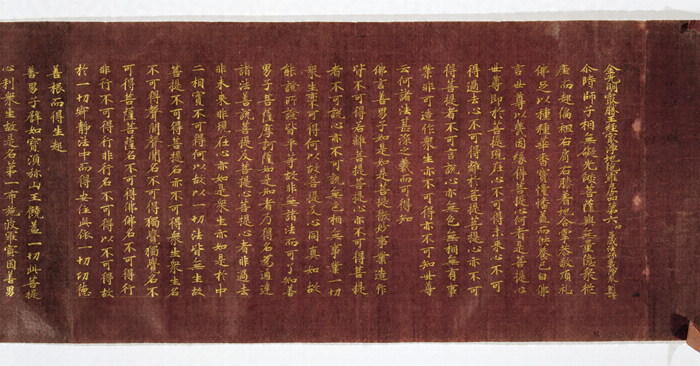 金光明最勝王經最淨地陀羅尼品第六 四 三藏法師義淨奉制譯
尒時師子相無礙光焰菩薩與無量億衆從
座而起偏袒右肩右膝著地合掌恭敬頂礼
佛足以種種華香寶幢幡蓋而供養已白佛
言世尊以幾因緣得菩提心何者是菩提心
世尊即於菩提現在心不可得未來心不可
得過去心不可得離於菩提菩提心亦不可
得菩提者不可言說心亦無色無相無有事
業非可造作衆生亦不可得亦不可知世尊
云何諸法甚深之義而可得知
佛言善男子如是如是菩提微妙事業造作
皆不可得若離菩提菩提心亦不可得菩提
者不可說心亦不可說無色相無事業一切
衆生亦不可得何以故菩提及心同真如故
能證所證皆平等故非無諸法而可了知善
男子菩薩摩訶薩如是知者乃得名為通達
諸法善說菩提及菩提心菩提心者非過去
非未來非現在心亦如是衆生亦如是於中
二相實不可得何以故以一切法皆無生故
菩提不可得菩提名亦不可得衆生衆生名
不可得聲聞聲聞名不可得獨覺獨覺名不
可得菩薩菩薩名不可得佛佛名不可得行
非行不可得行非行名不可得以不可得故
於一切寂靜法中而得安住此依一切功德
善根而得生起
善男子譬如寶須弥山王饒益一切此菩提
心利衆生故是名第一布施波羅蜜因善男